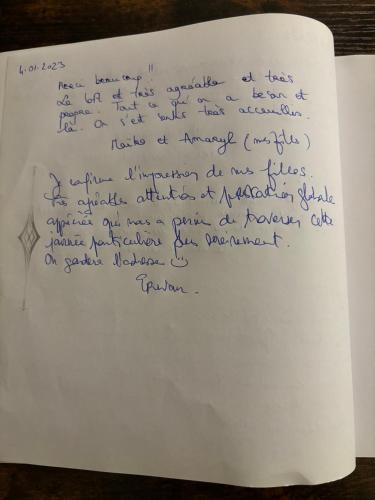 4.01.2023
Merci beaucoup !!
Le loft et très agréable et très
propre. Tout ce qu'on a besoin et
là. On s'est senties très accueillies.
Maïke et Amaryl (mes filles)
Je confirme l'impression de mes filles.
Très agréables attentions et prestation globale
appréciée qui nous a permis de traverser cette
journée particulière plus sereinement.
On gardera l'adresse